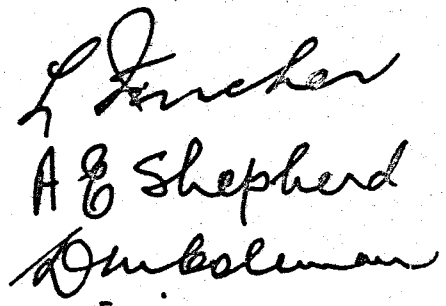 L Fincher
A E Shepherd
D M Coleman